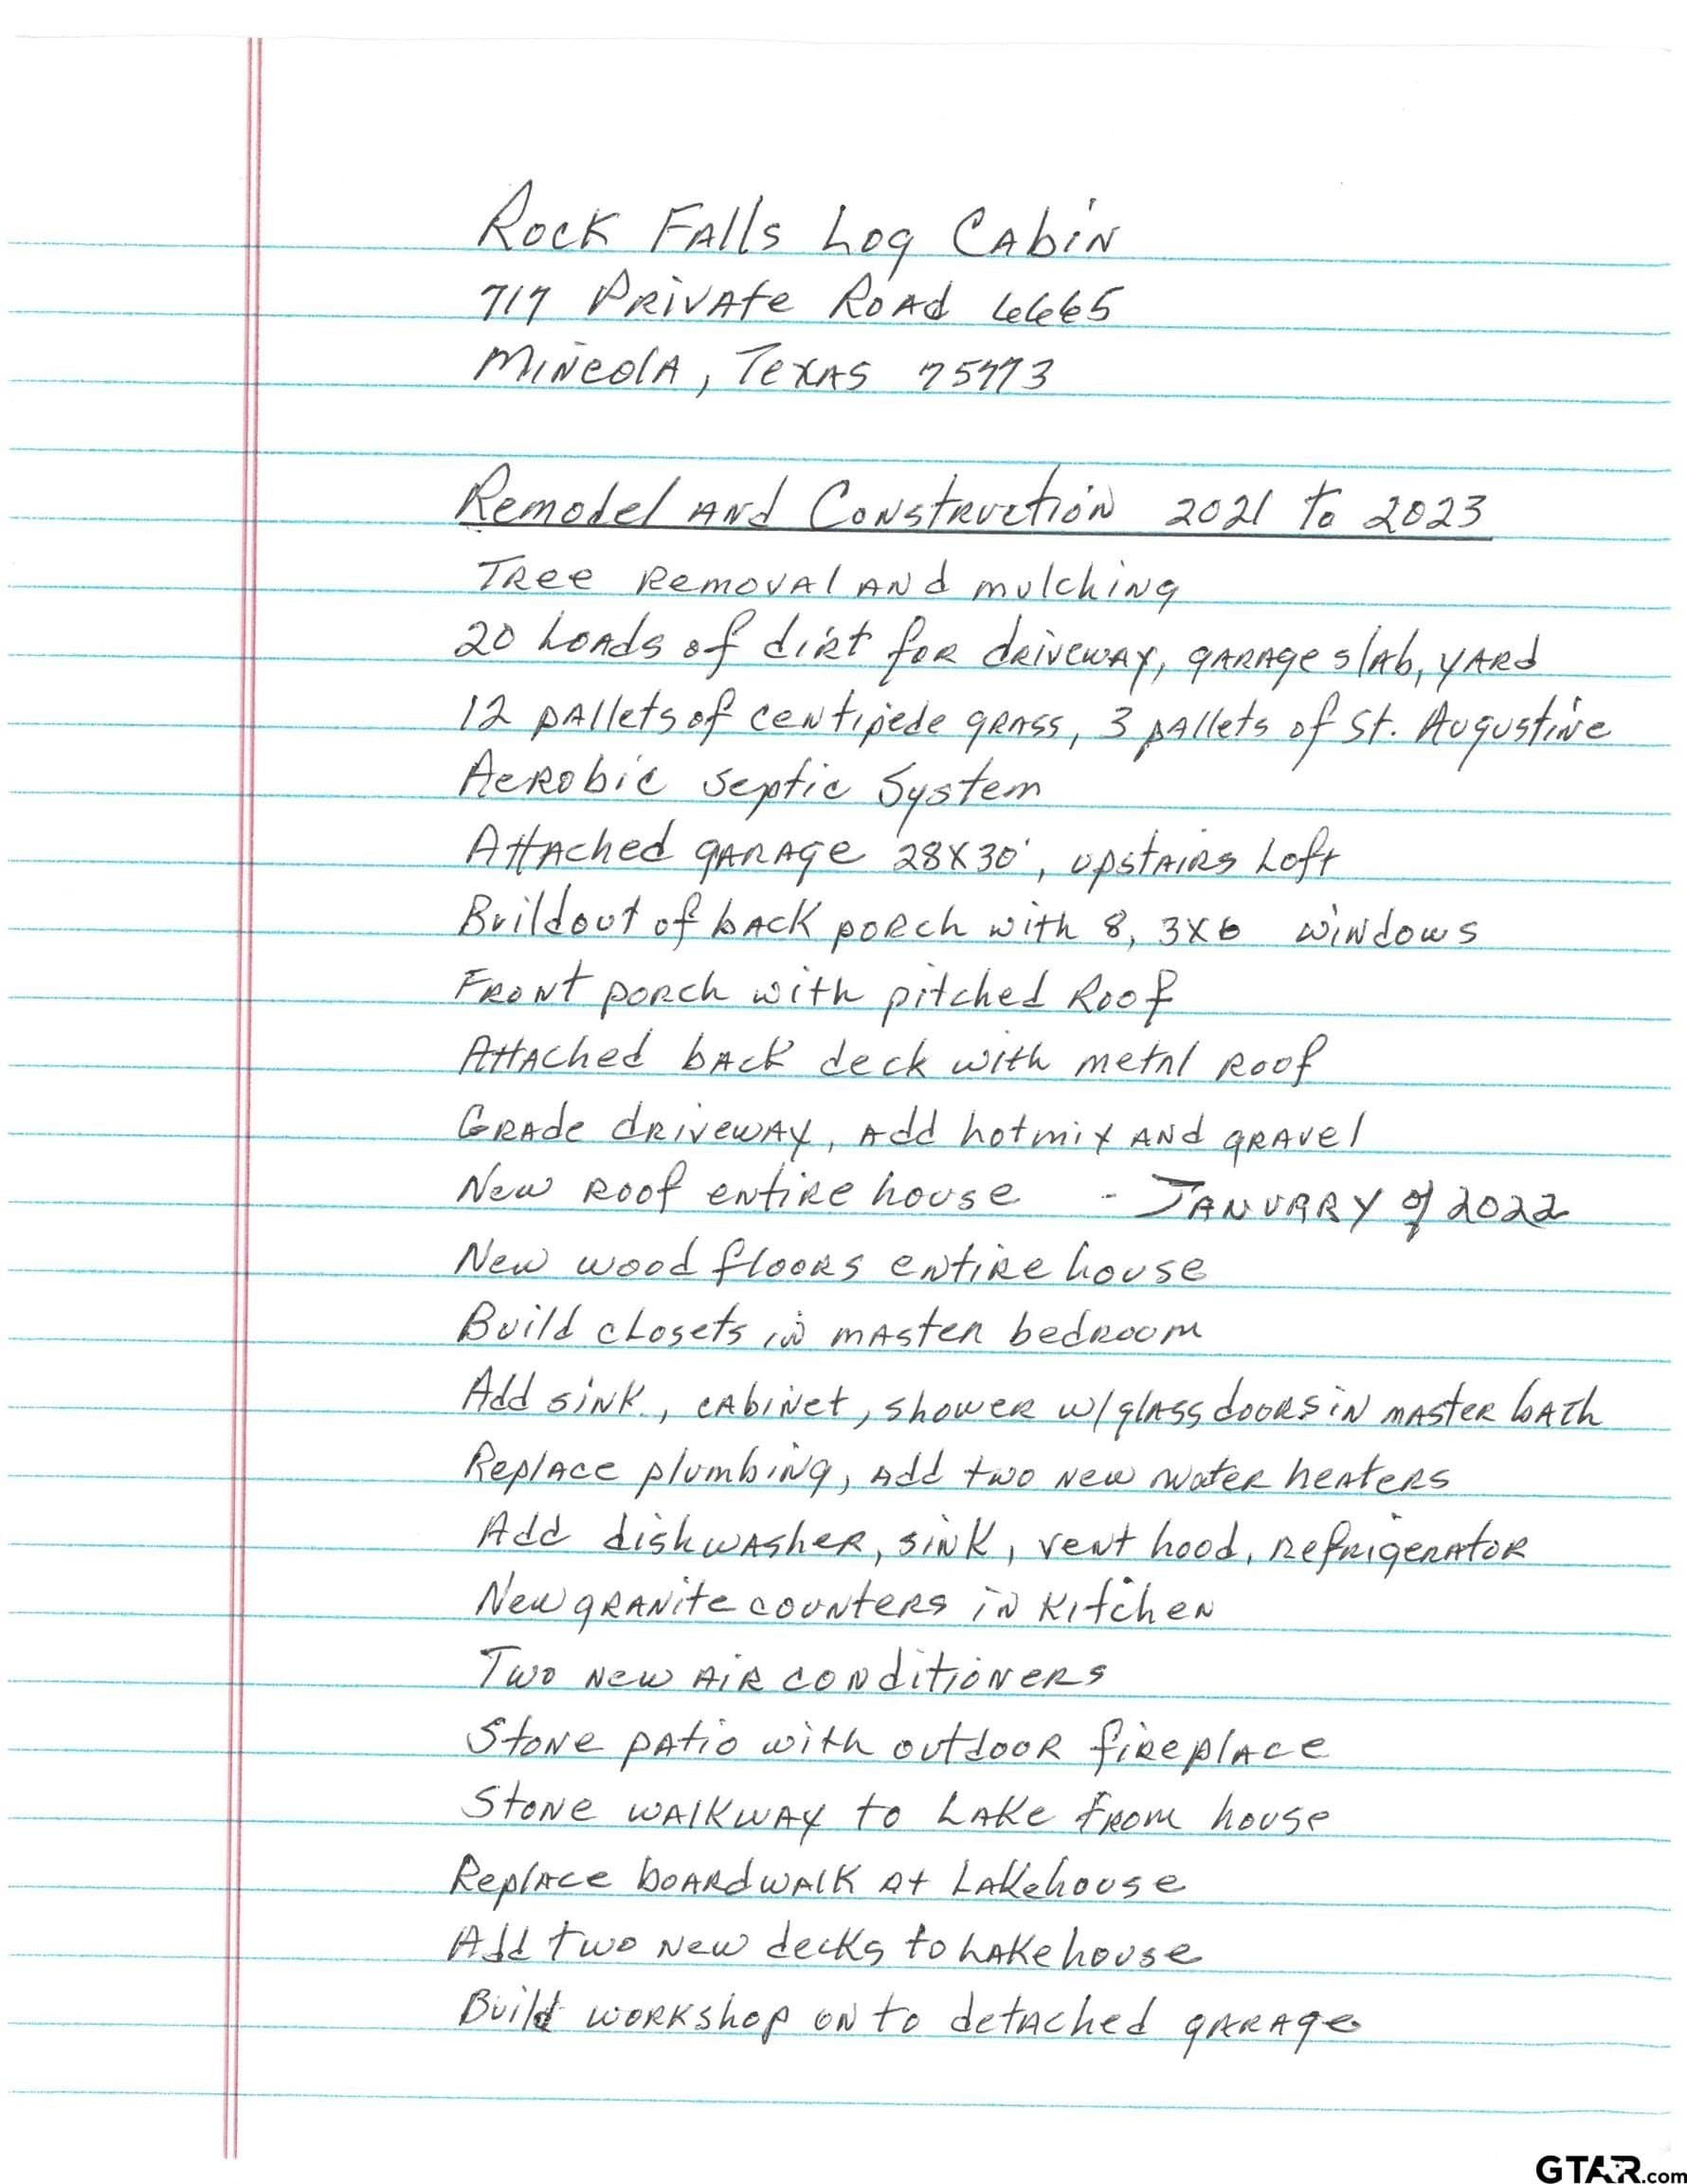 Rock Falls Log Cabin
717 Private Road 6665
Mineola, Texas 75773
Remodel and Construction 2021 to 2023
Tree Removal and mulching
20 Loads of dirt for driveway, garage slab, yard
12 pallets of centipede grass, 3 pallets of St. Augustine
Aerobic septic System
Attached garage 28x30', upstairs Loft
Buildout of back porch with 8, 3x6 windows
Front porch with pitched Roof
Attached back deck with metal Roof
Grade driveway, Add hotmix and gravel
New Roof entire house - January of 2022
New wood floors entire house
Build closets in master bedroom
Add sink, cabinet, shower w/glass doors in master bath
Replace plumbing, add two new water heaters
Add dishwasher, sink, vent hood, refrigerator
New granite counters in kitchen
Two new air conditioners
Stone patio with outdoor fireplace
Stone walkway to Lake from house
Replace boardwalk at Lakehouse
Add two new decks to Lakehouse
Build workshop on to detached garage
GTAR.com